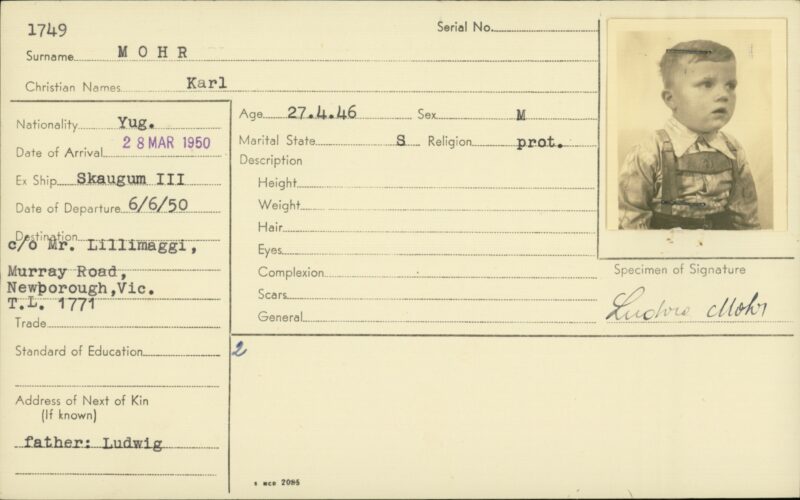 1749
Serial No.
Surname MOHR
Christian Names Karl
Nationality Yug.
Date of Arrival 28 MAR 1950
Ex Ship Skaugum III
Date of Departure 6/6/50
Destination
c/o Mr. Lillimaggi,
Murray Road,
Newborough,Vic.
T.L. 1771
Trade
Standard of Education
Address of Next of Kin
(If known)
father: Ludwig
Age 27.4.46 Sex M
Marital State S Religion prot.
Description
Height
Weight
Hair
Eyes
Complexion
Scars
General
2
Specimen of Signature
Ludwig Mohr
S MCD 2085